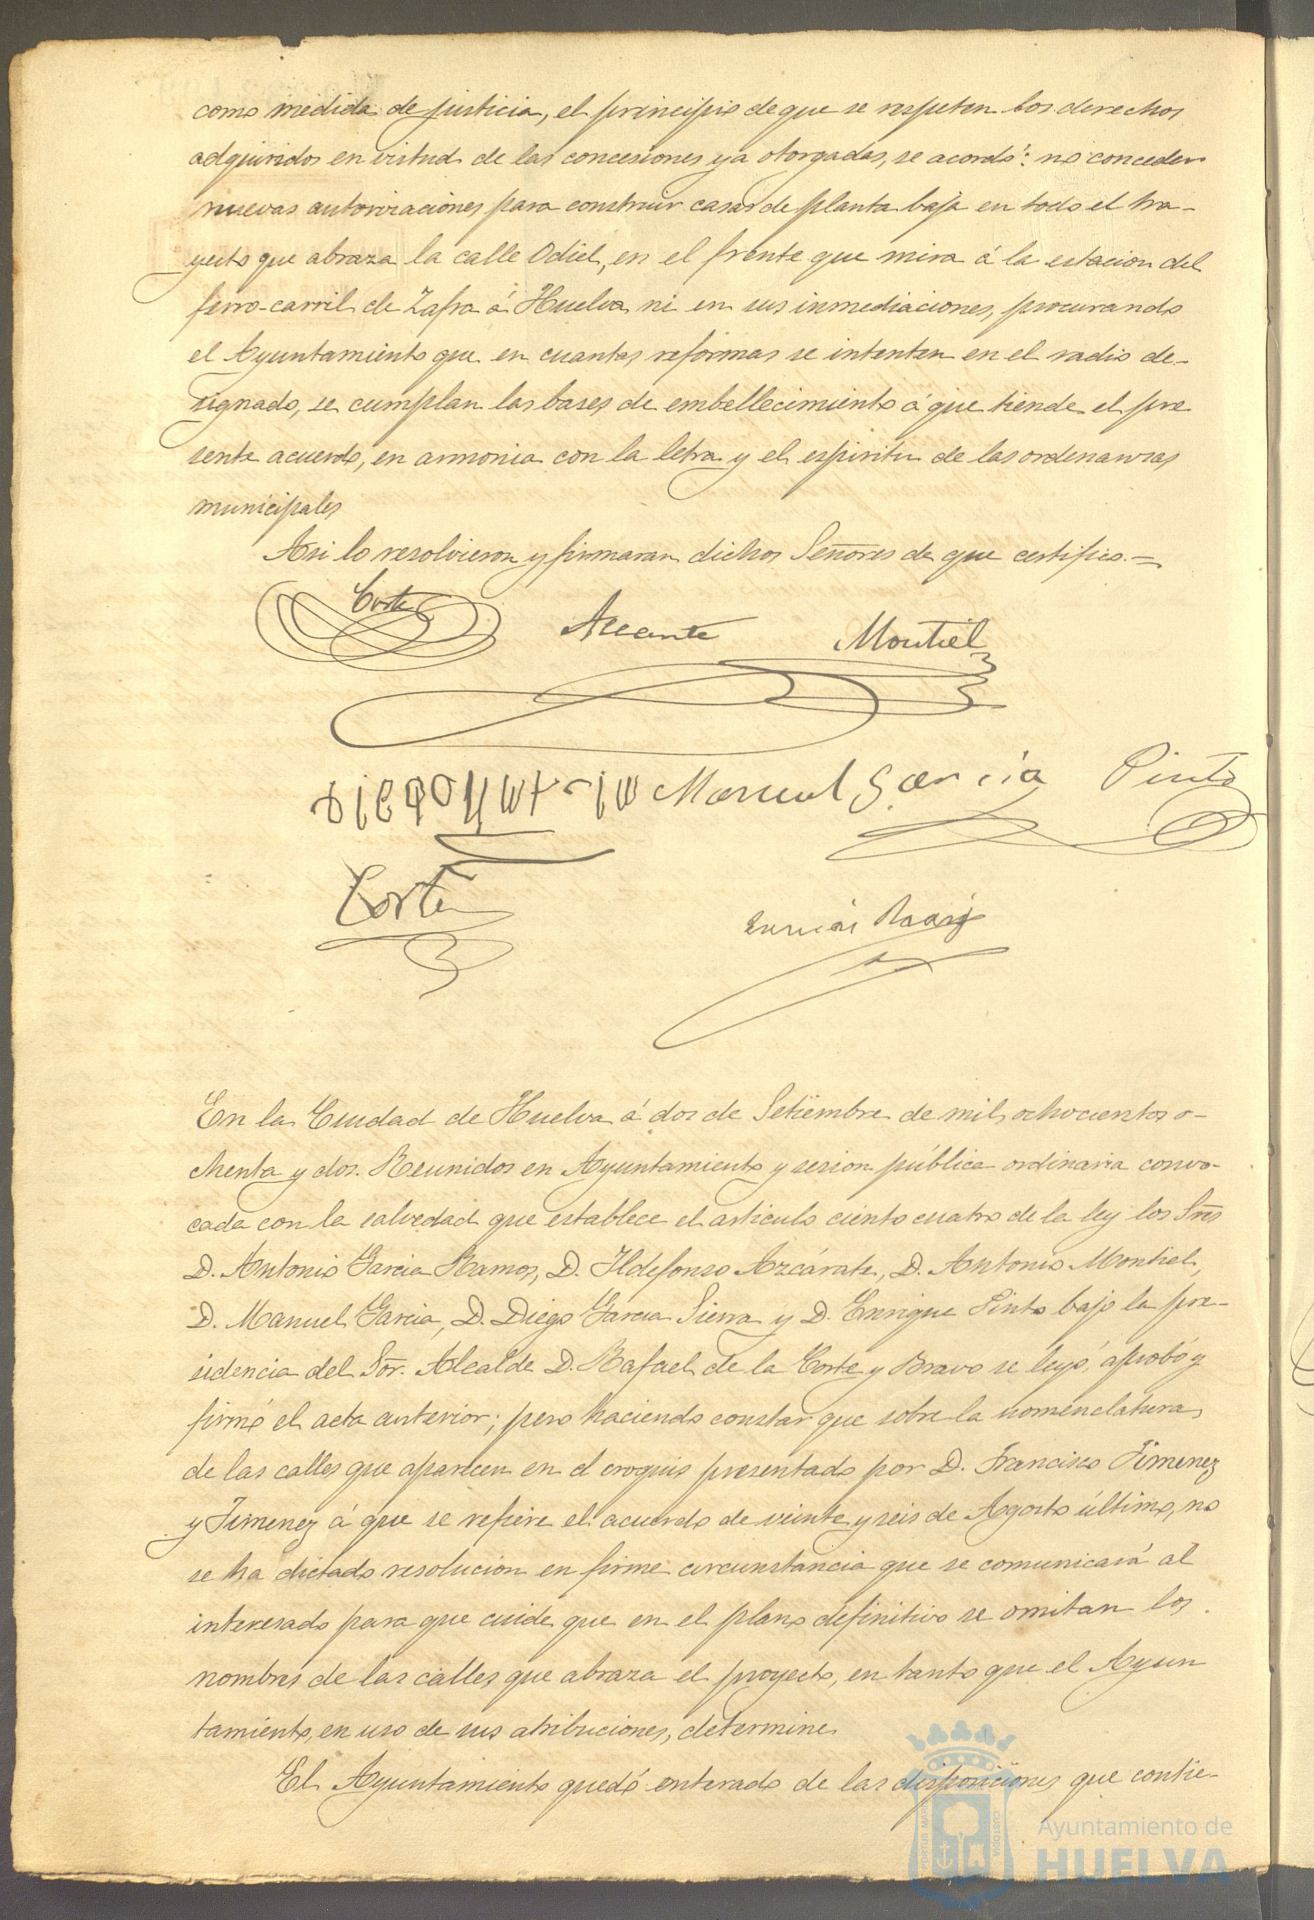 como medida de justicia, el principio de que se respeten los derechos
adquiridos en virtud de las concesiones ya otorgadas, se acordó: no conceder
nuevas autorizaciones para construir casas de planta baja en todo el tra-
yecto que abraza la calle Odiel, en el frente que mira á la estacion del
ferro-carril de Zafra á Huelva ni en sus inmediaciones, procurando
el Ayuntamiento que en cuantas reformas se intenten en el radio de-
signado, se cumplan las bases de embellecimiento á que tiende el pre
sente acuerdo, en armonia con la letra y el espiritu de las ordenanzas
municipales
Asi lo resolvieron y firmaran dichos Señores de que certifico.=
Corte Montiel
Manuel Garcia Pinto
Corte
En la Ciudad de Huelva á dos de Setiembre de mil ochocientos o-
chenta y dos. Reunidos en Ayuntamiento y sesion pública ordinaria convo-
cada con la salvedad que establece el articulo ciento cuatro de la ley los Sres
D. Antonio Garcia Ramos, D. Ildefonso Azcárate, D. Antonio Montiel,
D. Manuel Garcia, D. Diego Garcia Sierra y D. Enrique Pinto bajo la pre-
sidencia del Sor. Alcalde D. Rafael de la Corte y Bravo se leyó, aprobó y
firmó el acta anterior; pero haciendo constar que sobre la nomenclatura
de las calles que aparecen en el croquis presentado por D. Francisco Jimenez
y Jimenez á que se refiere el acuerdo de veinte y seis de Agosto último, no
se ha dictado resolucion en firme circunstancia que se comunicará al
interesado para que cuide que en el plano definitivo se omitan los
nombres de las calles que abraza el proyecto, en tanto que el Ayun
tamiento, en uso de sus atribuciones, determine
El Ayuntamiento quedó enterado de las disposiciones que contie-
Ayuntamiento de
HUELVA